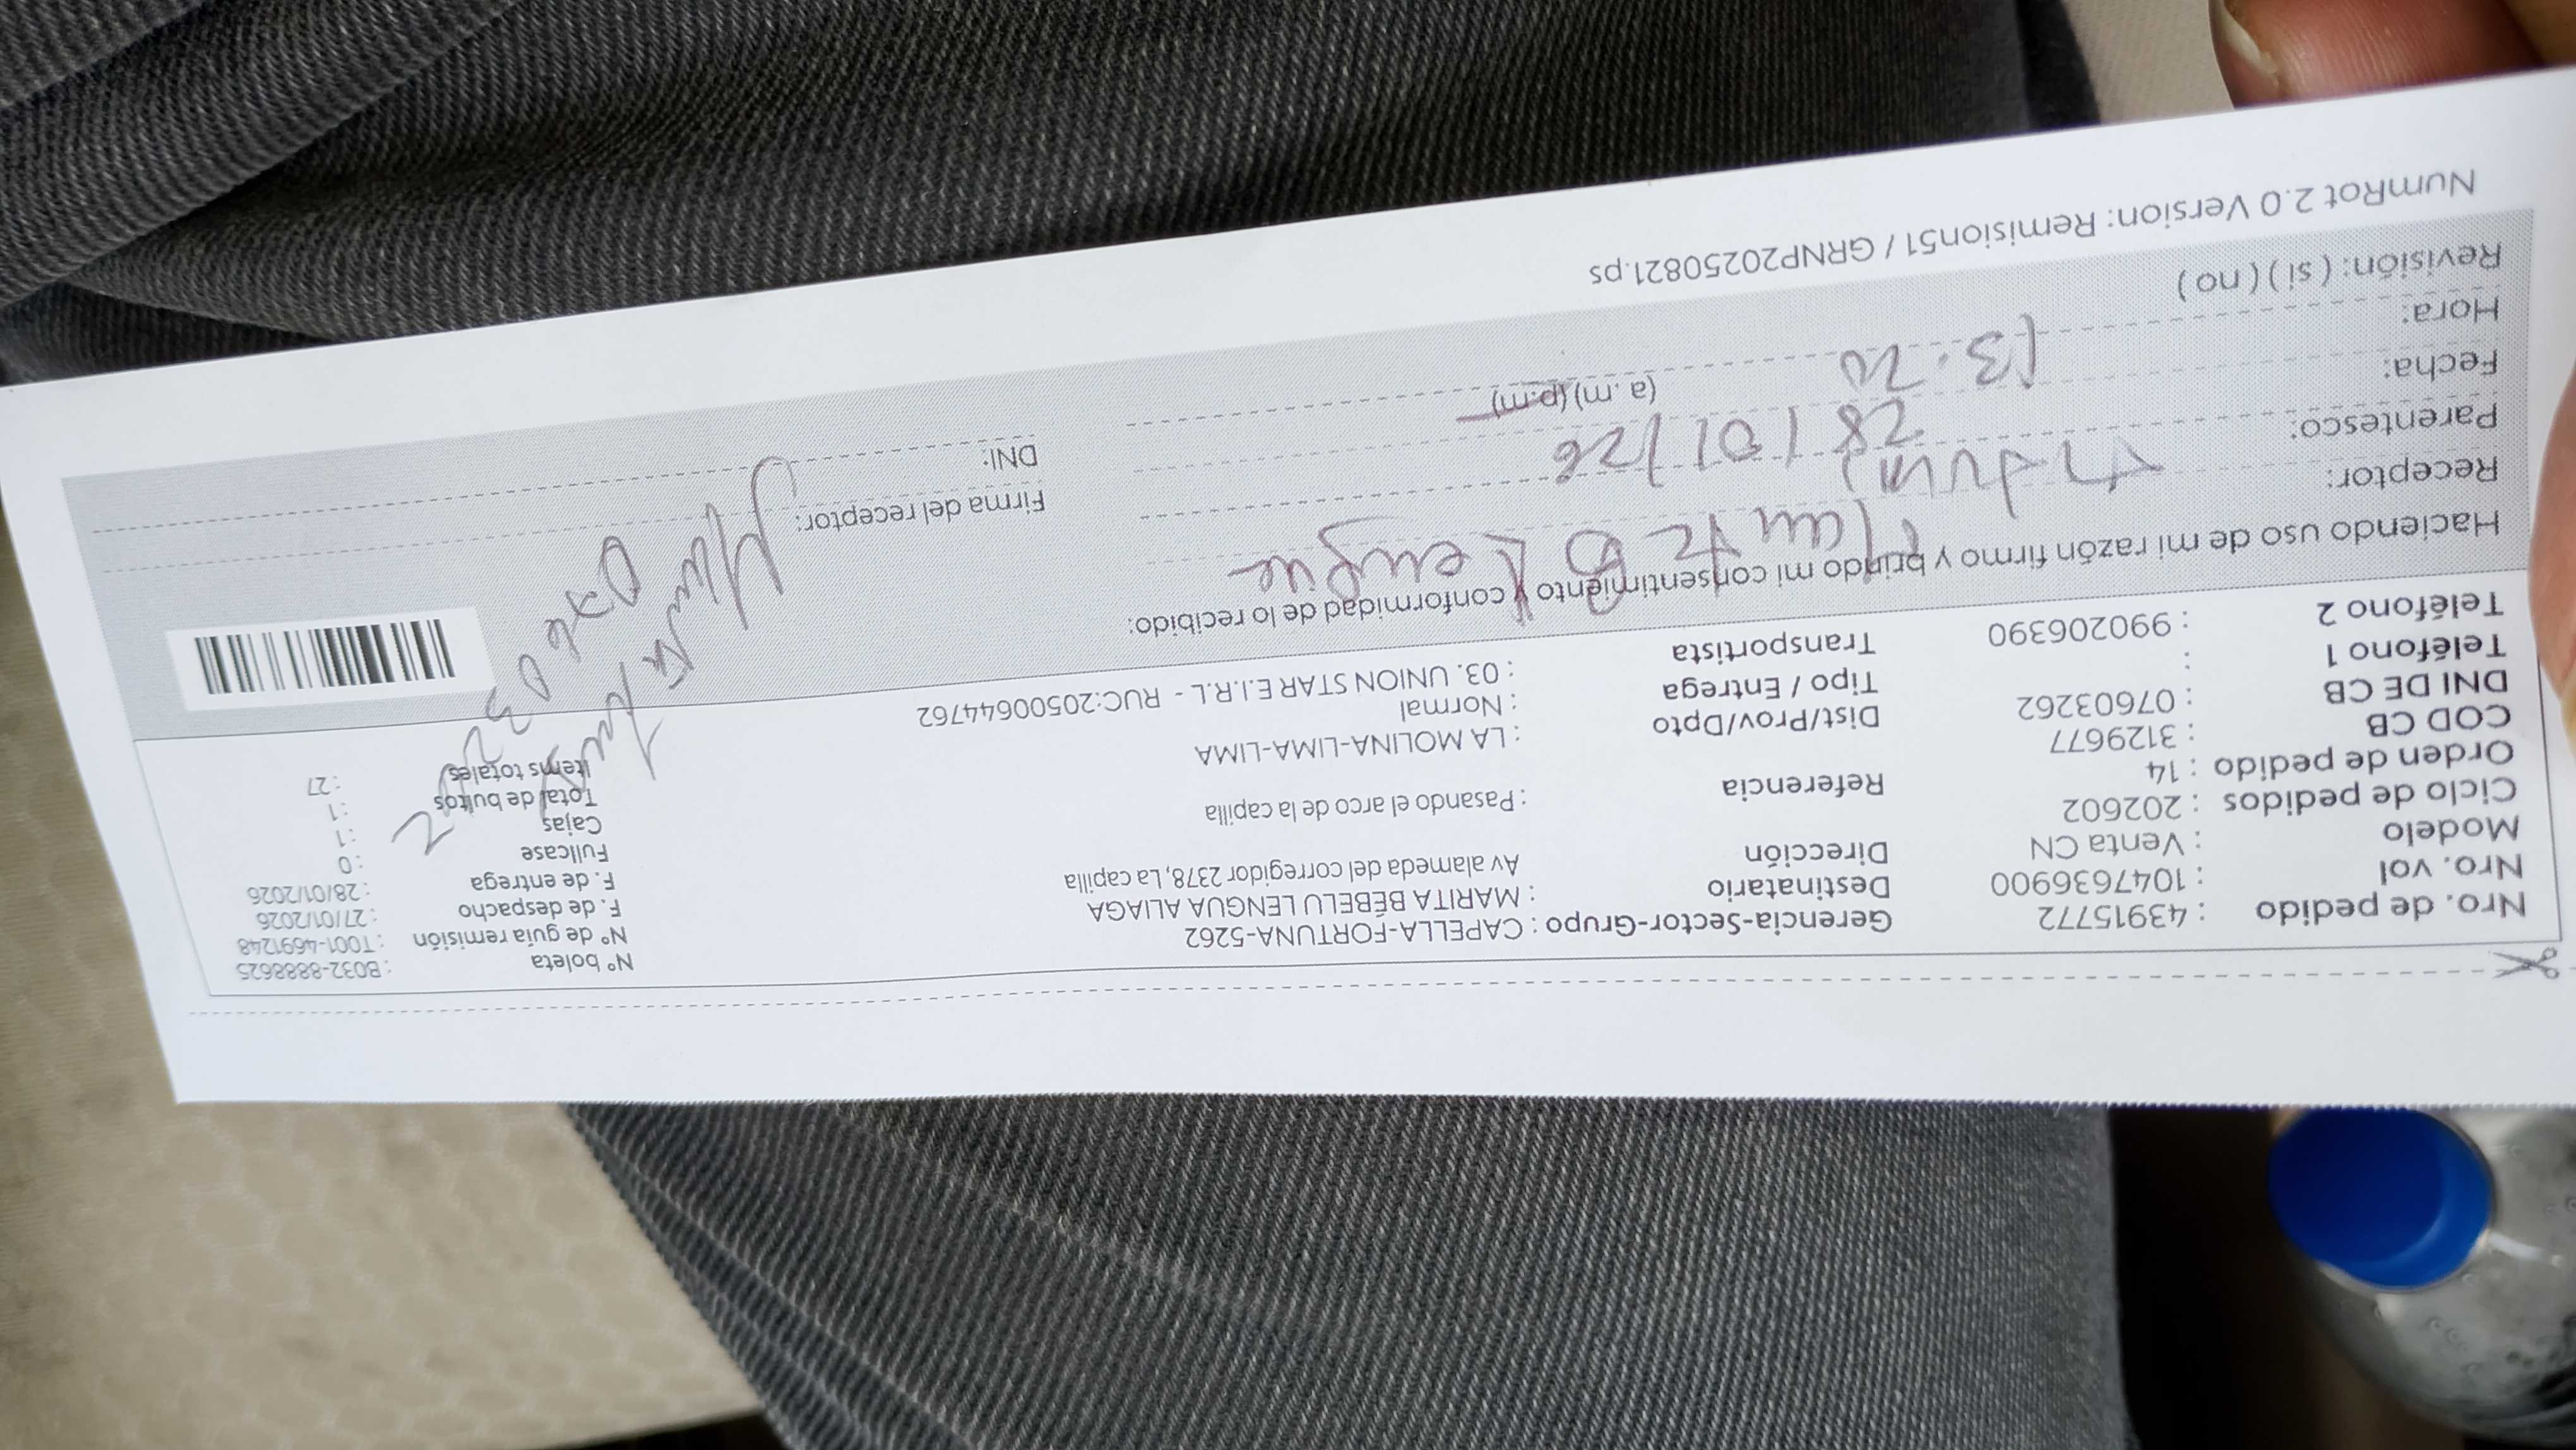 Nro. de pedido : 43915772
Nro. vol : 1047636900
Modelo : Venta CN
Ciclo de pedidos : 202602
Orden de pedido : 14
COD CB : 3129677
DNI DE CB : 07603262
Teléfono 1 :
Teléfono 2 : 990206390
Gerencia-Sector-Grupo : CAPELLA-FORTUNA-5262
Destinatario : MARITA BEBELU LENGUA ALIAGA
Dirección Av alameda del corregidor 2378, La capilla
Referencia : Pasando el arco de la capilla
Dist/Prov/Dpto : LA MOLINA-LIMA-LIMA
Tipo / Entrega : Normal
Transportista : 03. UNION STAR E.I.R.L - RUC:20500644762
N° boleta : B032-8888625
N° de guia remisión : T001-4691248
F. de despacho : 27/01/2026
F. de entrega : 28/01/2026
Fullcase : 0
Cajas : 1
Total de bultos : 1
Items totales : 27
Haciendo uso de mi razón firmo y brindo mi consentimiento y conformidad de lo recibido:
Receptor:
Parentesco:
Fecha: 28/01/26
Hora: 13.20 (a.m) (p.m)
Revisión: ( si ) ( no )
Firma del receptor:
DNI:
NumRot 2.0 Version: Remision51 / GRNP20250821.ps